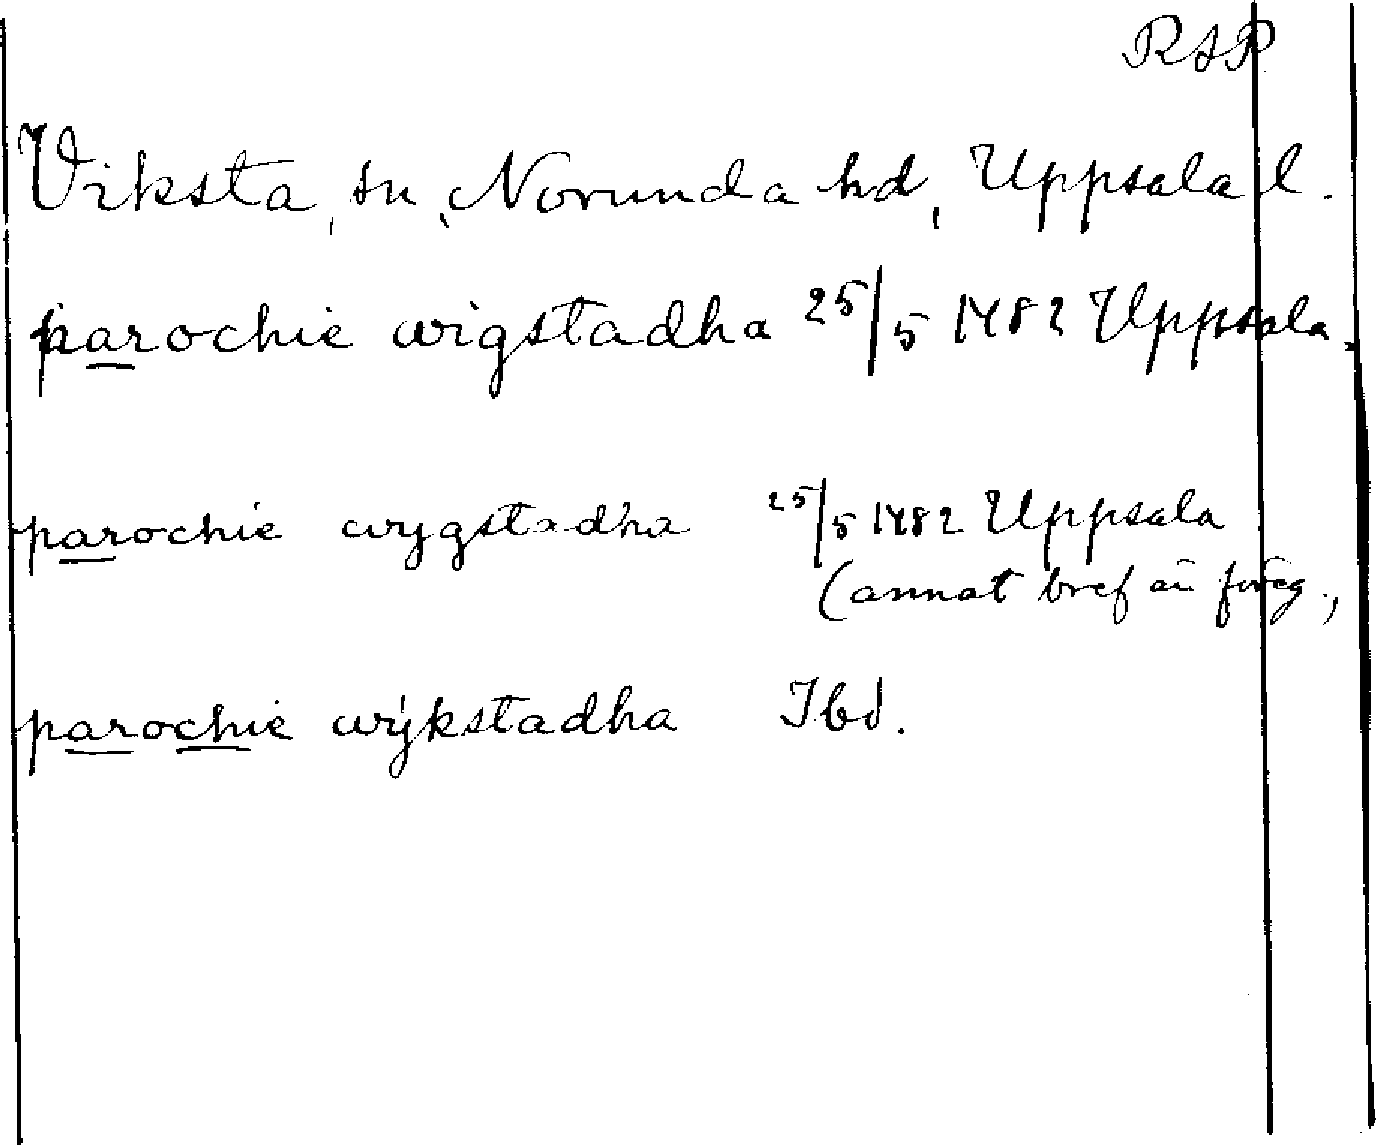 RAP
Viksta, sn, Norunda hd, Uppsala l.
parochie wigstadha 25/5 1482 Uppsala.
parochie wygstadha 25/5 1482 Uppsala
(annat bref än föreg.)
parochie wÿkstadha Ibd.